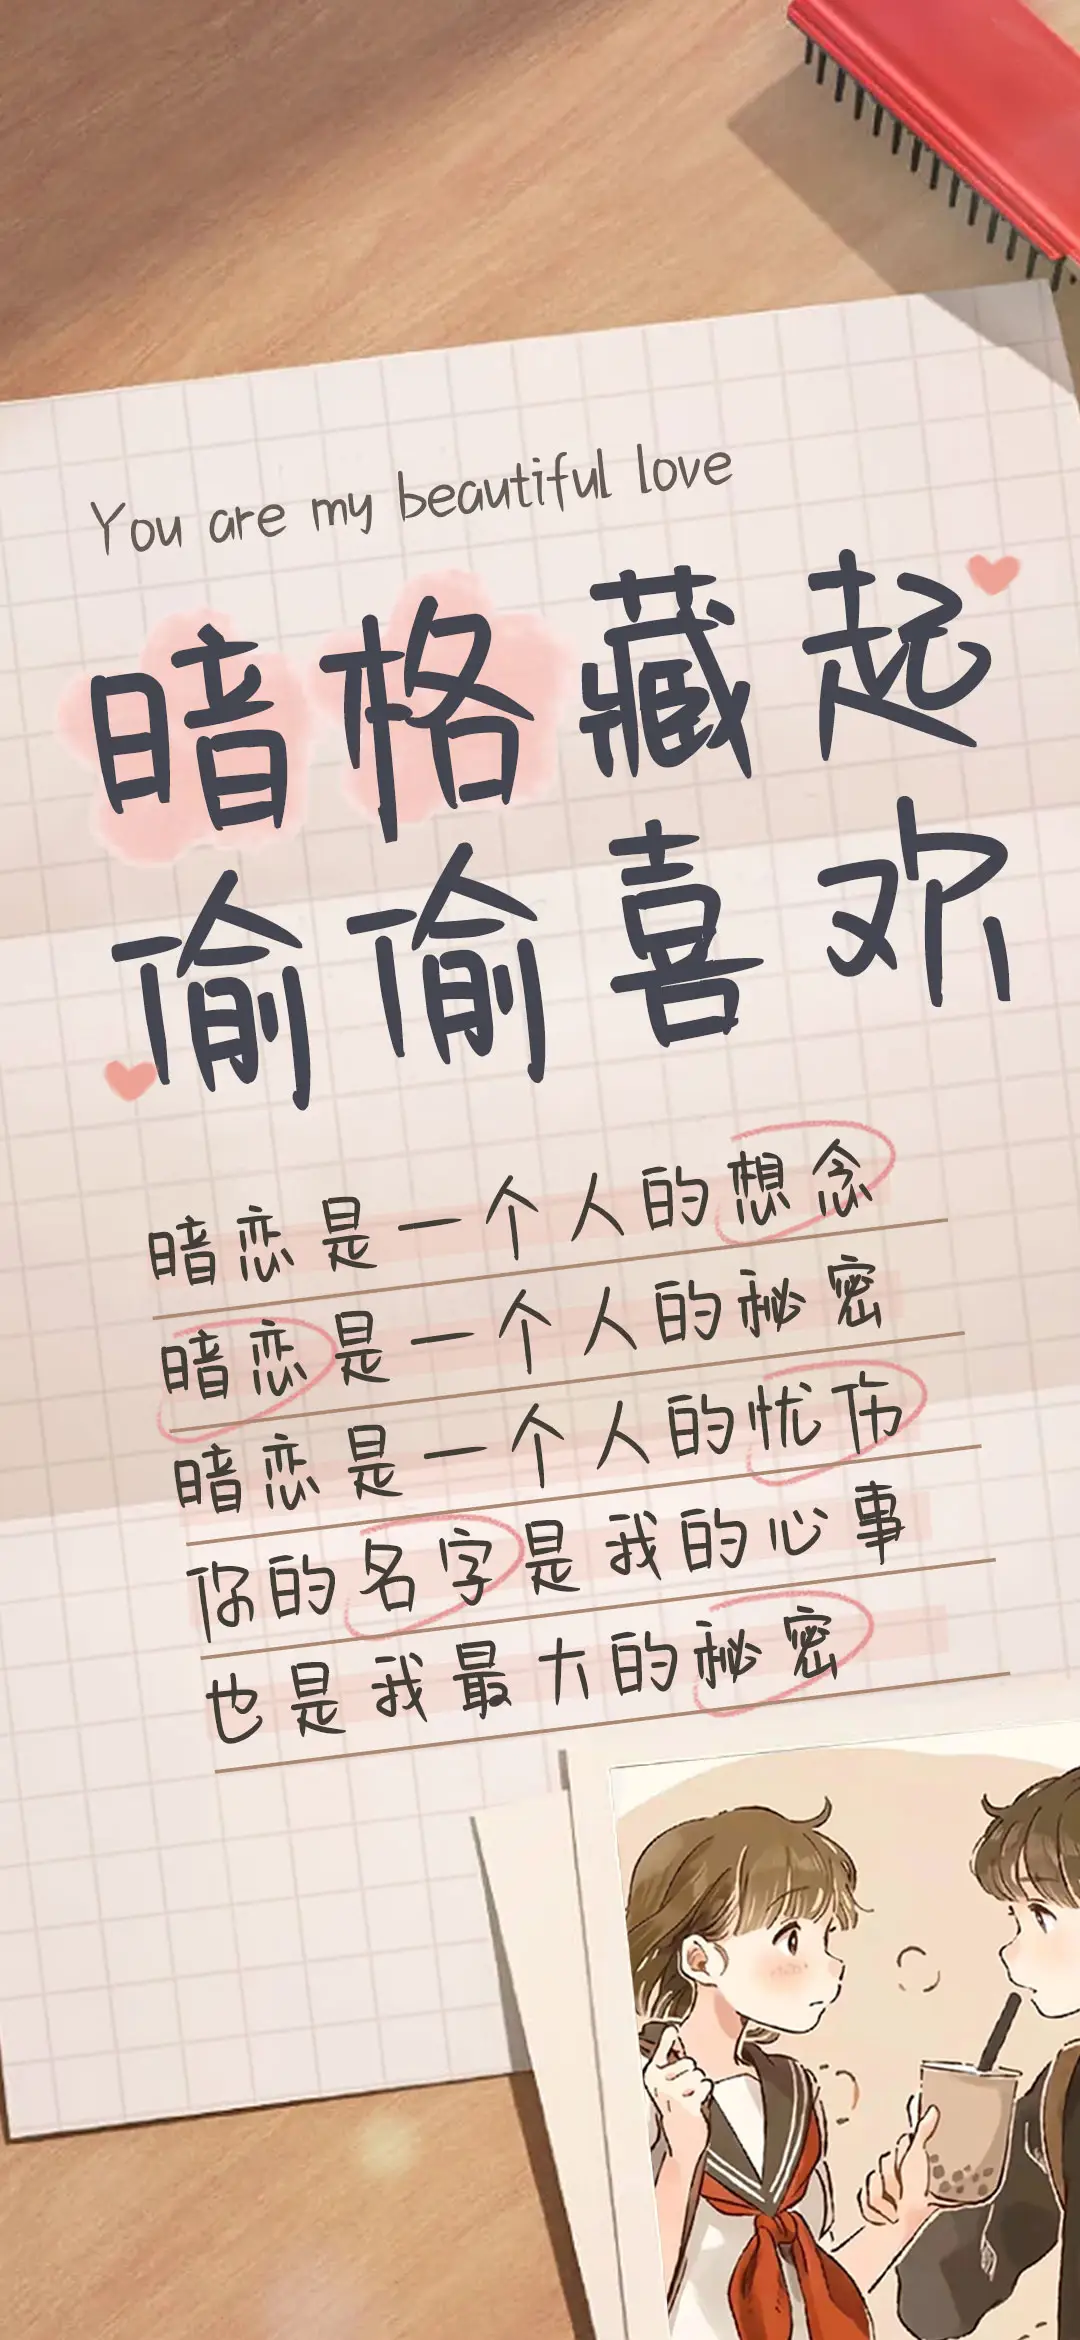 You are my beautiful love
暗格藏起
偷偷喜欢
暗恋是一个人的想念
暗恋是一个人的秘密
暗恋是一个人的忧伤
你的名字是我的心事
也是我最大的秘密